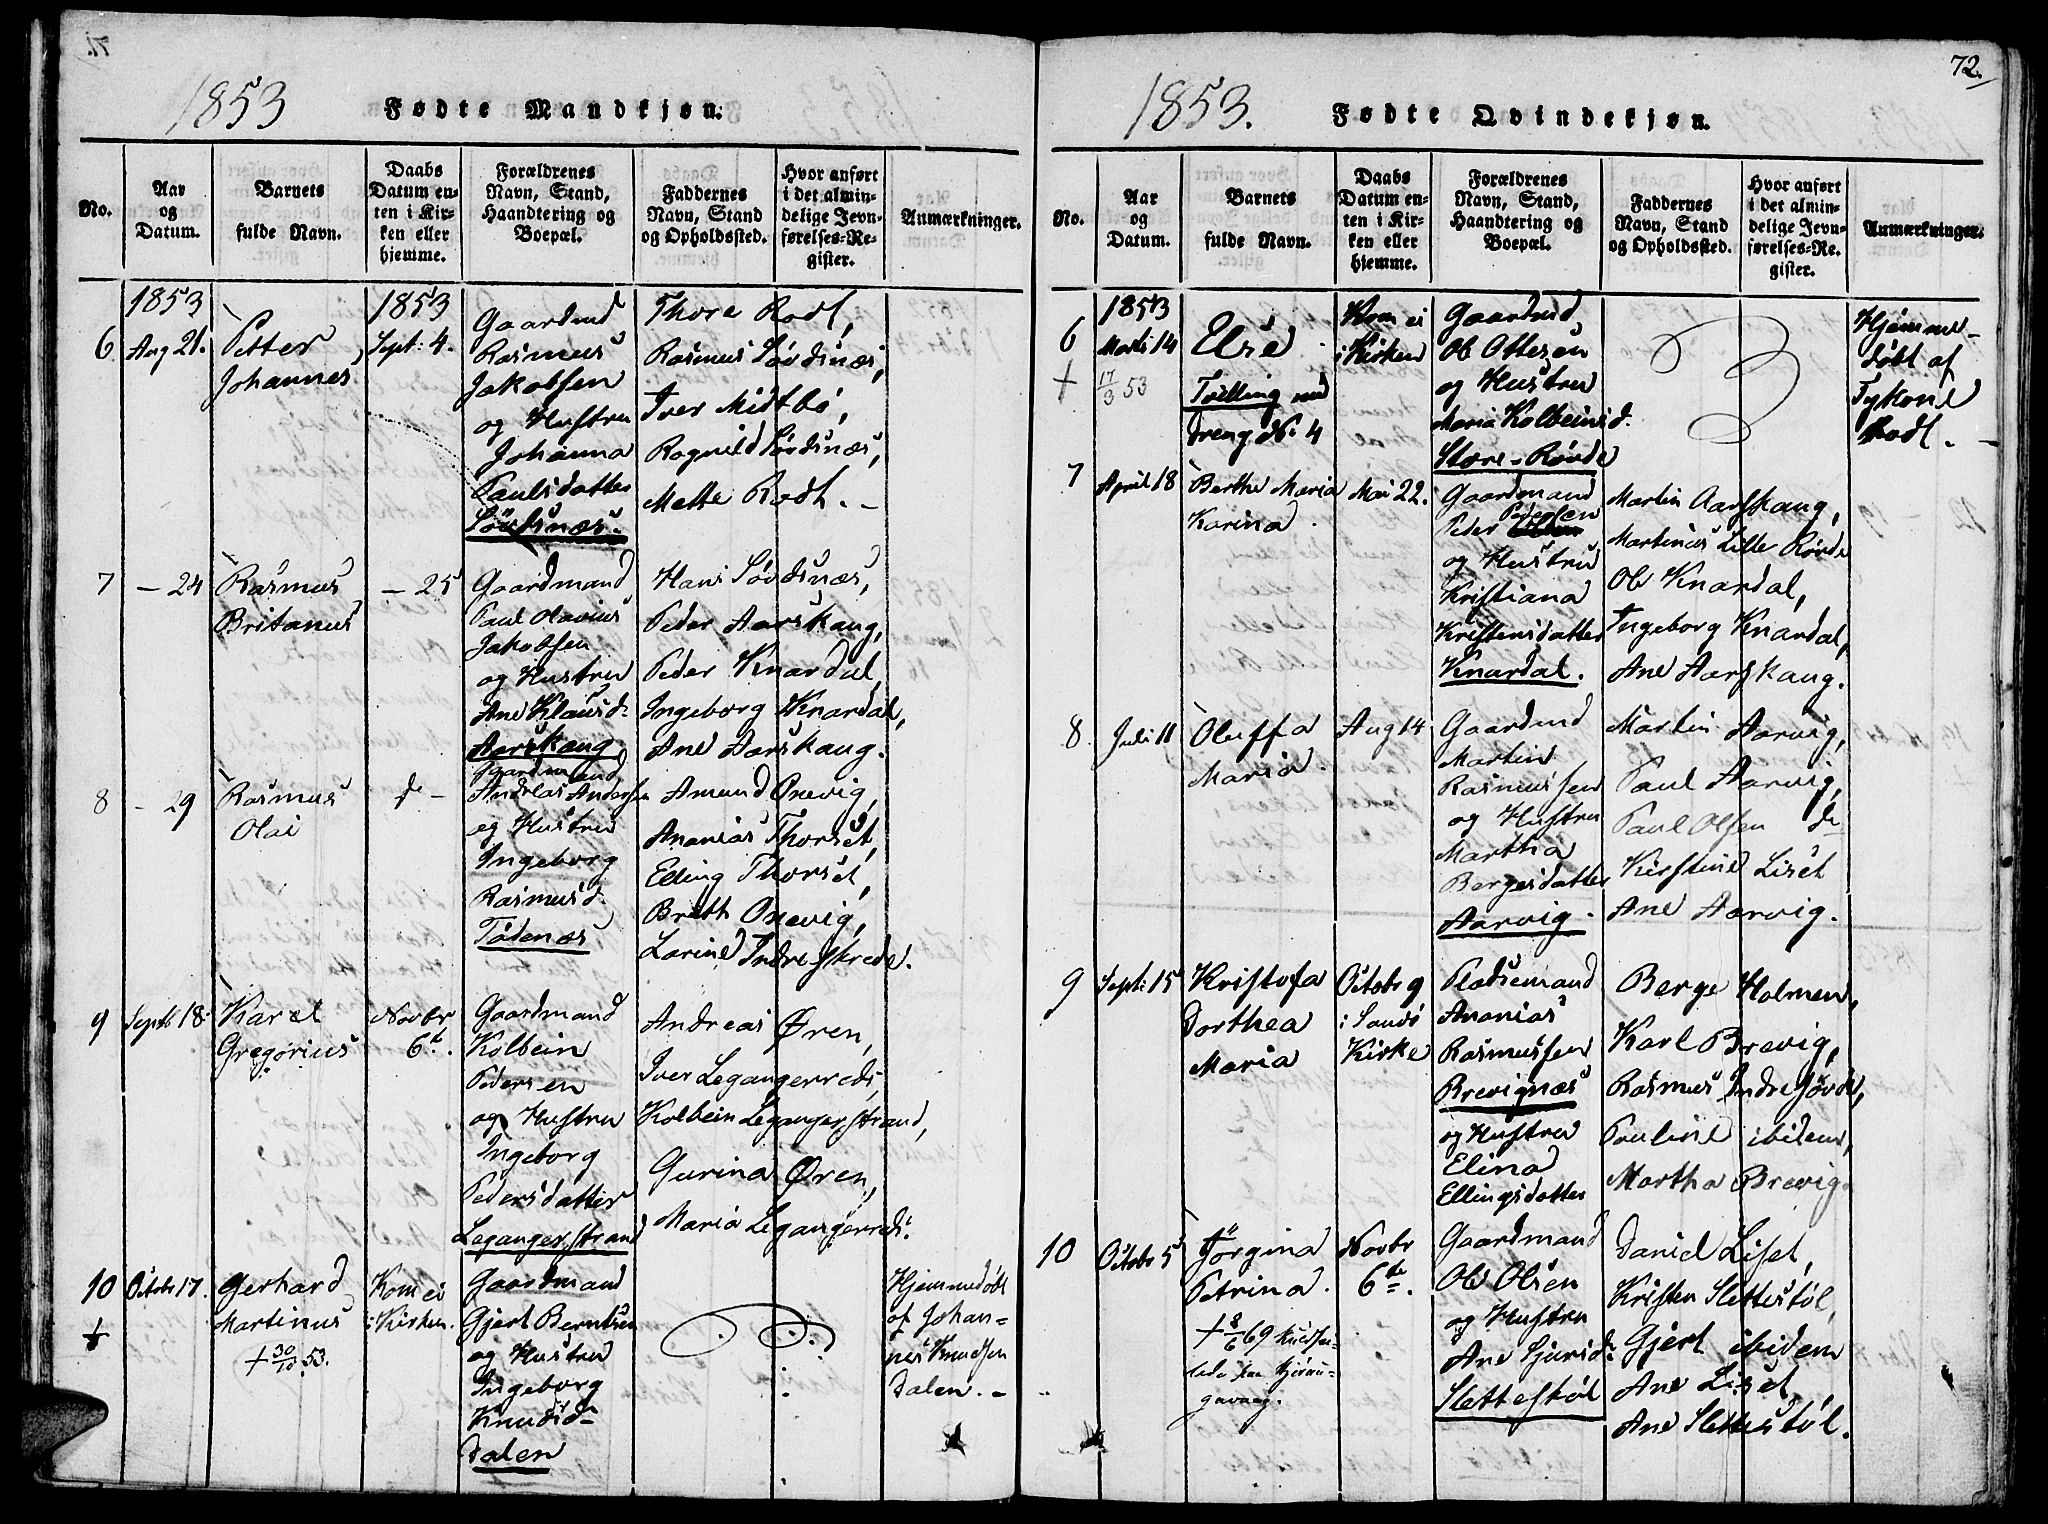 71.
1853
Fødte Mandkjøn.
No.
Aar
og
Datum.
Barnets
fulde Navn.
Daabs
Datum en-
ten i Kir-
ken eller
hjemme.
Forældrenes
Navn, Stand,
Haandtering og
Boepæl.
Faddernes
Navn, Stand
og Opholdssted.
Hvor anført
i det almin-
delige Jevn-
førelses-Re-
gister.
Anmærkninger.
1853
6
Aug 21.
Petter
Johannes
1853
Sept: 4.
Gaardmd
Rasmus
Jakobsen
og Hustru
Johanna
Paulsdatter
Sövdsnæs.
Thore Rodt,
Rasmus Sövdsnæs,
Iver Midtbö,
Ragnild Sövdsnæs,
Mette Rodt. -
7
- 24
Rasmus
Britanus
- 25
Gaardmand
Paul Olavius
Jakobsen
og Hustru
Ane Klausd.
Aarskaug
Hans Sövdsnæs,
Peder Aarskaug,
Peder Knardal,
Ingeborg Knardal,
Ane Aarskaug.
8
- 29
Rasmus
Olai
d -
Gaardmand
Andreas Anders
og Hustru
Ingeborg
Rasmusd.
Tödenæs
Amund Onevig,
Ananias Thorset,
Elling Thorset,
Britt Onevig,
Larine Indreskrede.
9
Septb 18.
Karel
Gregorius
Novbr
6te.
Gaardmand
Kolbein
Pedersen
og Hustru
Ingeborg
Pedersdatter
Legangerstrand
Andreas Øren,
Iver Legangerreds
Kolbein Legangerstrand,
Gurina Øren,
Maria Legangerreds.
10
+
Octobr 17.
Gerhard
Martinus
+ 30/10 53.
Kom ei
i Kirken.
Gaardmand
Gjert Berntsen
og Hustru
Ingeborg
Knudsd.
Dalen
Hjemmedöbt
af Johan-
nes Knudsen
Dalen. -
72.
1853.
Fødte Qvindekjøn.
No.
Aar
og
Datum.
Barnets
fulde Navn.
Daabs
Datum en-
ten i Kir-
ken eller
hjemme.
Forældrenes
Navn, Stand,
Haandtering og
Boepæl.
Faddernes
Navn, Stand
og Opholdssted.
Hvor anført
i det almin-
delige Jevn-
førelses-Re-
gister.
Anmærkninger.
1853
6
+
Marts 14
17/3 53
Else
Tvilling med
Dreng No 4
Kom ei
i Kirken
Gaardmd
Ole Ottesen
og Hustru
Maria Kolbeinsd.
Store-Rövde
Hjemme-
döbt af
Tykone
Rodt. -
7
April 18
Berthe Maria
Karina
Mai 22.
Gaardmand
Peder Pedersen
og Hustru
Kristiana
Kristensdatter
Knardal.
Martin Aarskaug,
Martinus Lille Rövde
Ole Knardal,
Ingeborg Knardal,
Ane Aarskaug.
8
Juli 11
Oluffa
Maria.
Aug 14
Gaardmd
Martin
Rasmussen
og Hustru
Martha
Bergesdatter
Aarvig.
Martin Aarvig,
Paul Aarvig,
Paul Olsen do
Kirstine Liset
Ane Aarvig.
9
Sept: 15
Kristofa
Dorthea
Maria
Octobr 9
i Sandö
Kirke
Pladsemand
Ananias
Rasmussen
Brevignæs
og Hustru
Elina
Ellingsdatter
Berge Holmen,
Karl Brevig,
Rasmus Indre Sövde,
Pauline ibidem,
Martha Brevig.
10
Octobr 5
Jörgina
Petrina.
Novbr
6te.
Gaardmand
Ole Olsen
og Hustru
Ane Sjursd.
Slettestöl
Daniel Liset,
Kristen Slettestöl,
Gjert ibidem
Ane Liset,
Ane Slettestöl.